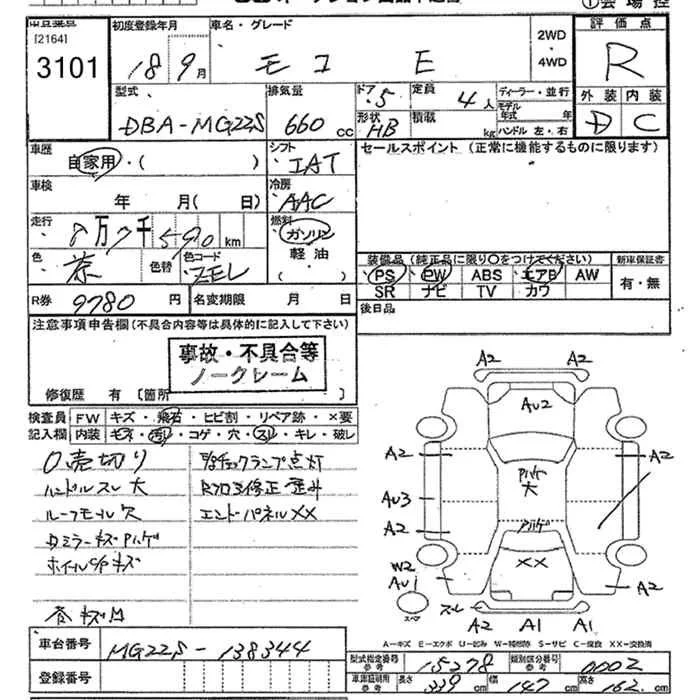 ①会場控
[2164]
3101
初度登録年月
18 9月
車名・グレード
モコ E
2WD
・
4WD
評価点
R
外装 内装
D C
型式
DBA-MG22S
排気量
660 cc
ドア 5
形状 HB
定員 4人
積載 kg
ディーラー・並行
モデル年式 年
ハンドル 左・右
車歴
自家用・( )
シフト
IAT
セールスポイント (正常に機能するものに限ります)
車検
年 月( 日)
冷房
AAC
走行
8万7千590 km
燃料
ガソリン
軽油
・( )
色
茶
色替
色コード
ZEL
装備品 (純正品に限り○をつけてください)
PS PW ABS エアB AW
SR ナビ TV カワ
新車保証書
有・無
R券 9780 円
名変期限 月 日
後日品
注意事項申告欄 (不具合内容等は具体的に記入して下さい)
事故・不具合等
ノークレーム
修復歴 有 [箇所 ]
検査員記入欄
FW キズ・飛石・ヒビ割・リペア跡・×要
内装 キズ・汚れ・コゲ・穴・スレ・キレ・破レ
売切り
ハンドルスレ大
ルーフモール欠
ホイルC/Pキズ
チェックランプ点灯
エンドパネルXX
A2 A2
AU2
A2 A2
大
AU3
A2
XX
W2
AU1
A2
スペア
スレ
A2 A1 A1
A=キズ E=エクボ U=凹み W=補修跡 S=サビ C=腐食 XX=交換済
車台番号
MG22S-138344
登録番号
型式指定番号 参考 15278
類別区分番号 参考 0002
車庫証明用 参考
長さ 339 cm
幅 147 cm
高さ 162 cm